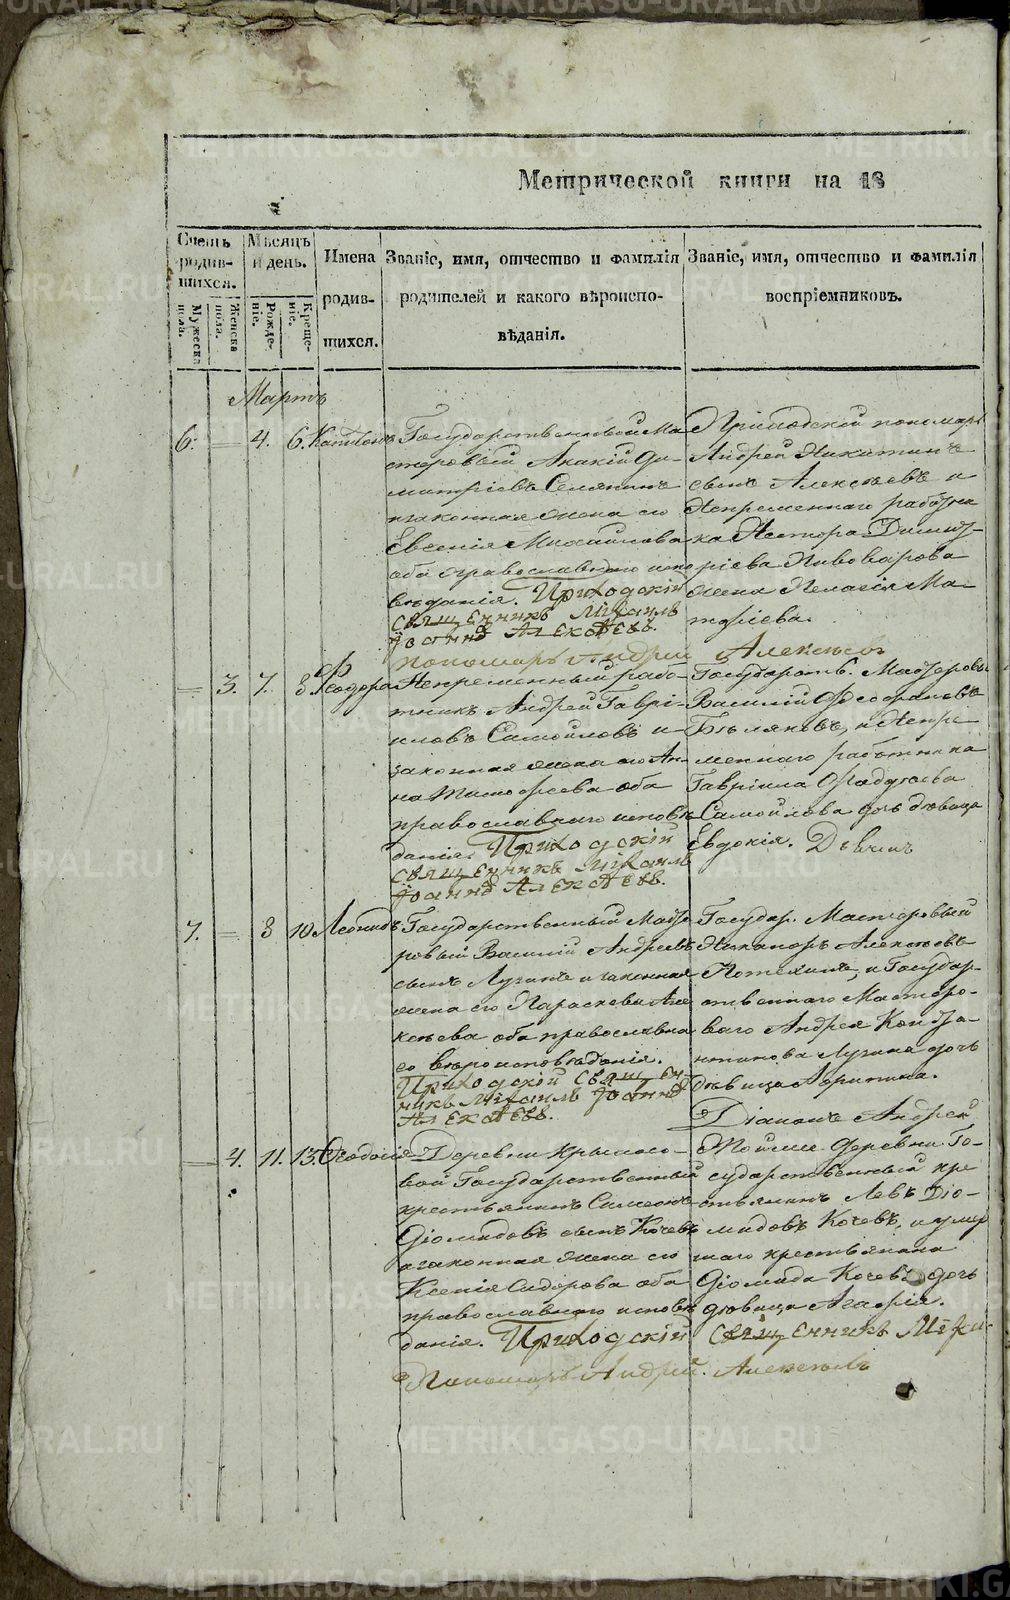 Метрической книги на 18
Счетъ родив-шихся.
Мужеска пола.
Женска пола.
Мѣсяцъ и день.
Рожде-ніе.
Креще-ніе.
Имена родив-шихся.
Званіе, имя, отчество и фамилія
родителей и какого вѣроиспо-
вѣданія.
Званіе, имя, отчество и фамилія
воспріемниковъ.
Мартъ
6. 4. 6.
Государственный Ма-
стеровый Ди-
митріевъ
и законная жена его
Евсенія Михайлова
оба православнаго испо
вѣданія. Приходскій
Священникъ Міхаилъ
Іоаннъ Алексѣевъ.
Приходскій пономарь
Андрей Никитинъ
сынъ Алексѣевъ и
Непременнаго работни
ка Нестора Димит-
ріева Пивоварова
жена Пелагія Ма-
тфіева.
Пономарь Андрей Алексѣевъ
3. 7. 8. Феодора
Непременный рабо-
тникъ Андрей Гаврі-
иловъ Самойловъ и
законная жена его Ан-
на Тимофеева оба
православнаго исповѣ
данія. Приходскій
Священникъ Міхаилъ
Іоаннъ Алексѣевъ.
Государств. Мастеровый
Василій Феофановъ
Бѣляковъ, и Непре
меннаго работника
Гавріила
Самойлова дочь дѣвица
Евдокія. Дьячекъ
7. 8 10 Леонидъ
Государственный Масте
ровый Василій Андреевъ
сынъ Лузинъ и законная
жена его Параскева Але
ксѣева оба православна
го вѣроисповѣданія.
Приходскій Священ
никъ Міхаилъ Іоаннъ
Алексѣевъ.
Государ. Мастеровый
Никаноръ Алексѣевъ
и Государ-
ственнаго Мастеро-
ваго Андрея Конста-
нтинова Лузина дочь
дѣвица
Діаконъ Андрей
4. 11. 13. Феодосія
Деревни
вой Государственный
крестьянинъ Симеонъ
Діомидовъ сынъ Кочевъ
и законная жена его
Ксенія Сидорова оба
православнаго исповѣ
данія. Приходскій Священникъ Міхаи
Тойже деревни Го-
сударственный кре
стьянинъ Левъ Діо-
мидовъ Кочевъ, и умер
шаго крестьянина
Діомида Кочева дочь
дѣвица Агафія.
Пономарь Андрей Алексѣевъ
METRIKI.GASO-URAL.RU